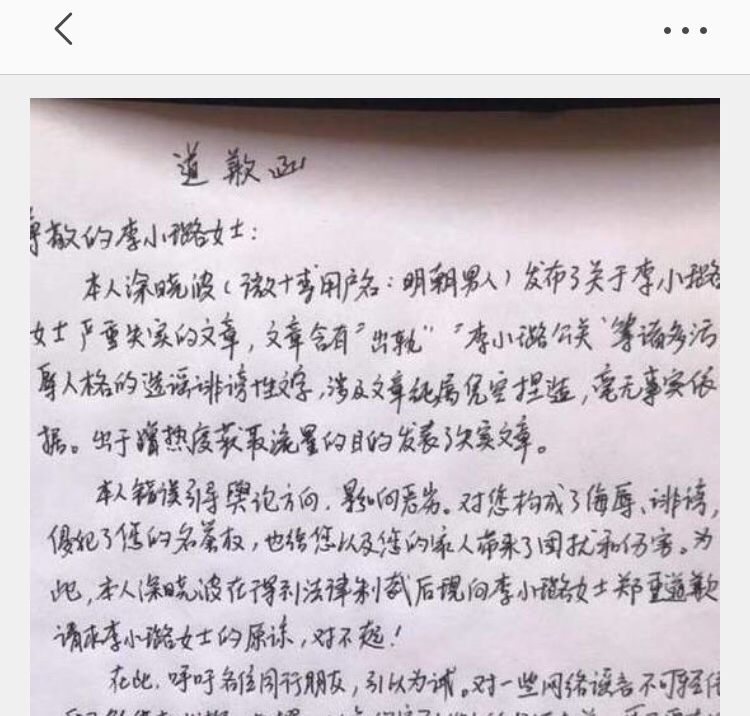 道歉函
尊敬的李小璐女士：
本人深晓波（微博用户名：明朝男人）发布了关于李小璐
女士严重失实的文章，文章含有"出轨""李小璐公关"等诸多污
辱人格的造谣诽谤性文字，涉及文章纯属凭空捏造，毫无事实依
据。出于蹭热度获取流量的目的发表了失实文章。
本人错误引导舆论方向，影响恶劣。对您构成了侮辱、诽谤，
侵犯了您的名誉权，也给您以及您的家人带来了困扰和伤害。为
此，本人深晓波在得到法律制裁后现向李小璐女士郑重道歉
请求李小璐女士的原谅，对不起！
在此，呼吁各位同行朋友，引以为诫。对一些网络谣言不可轻信